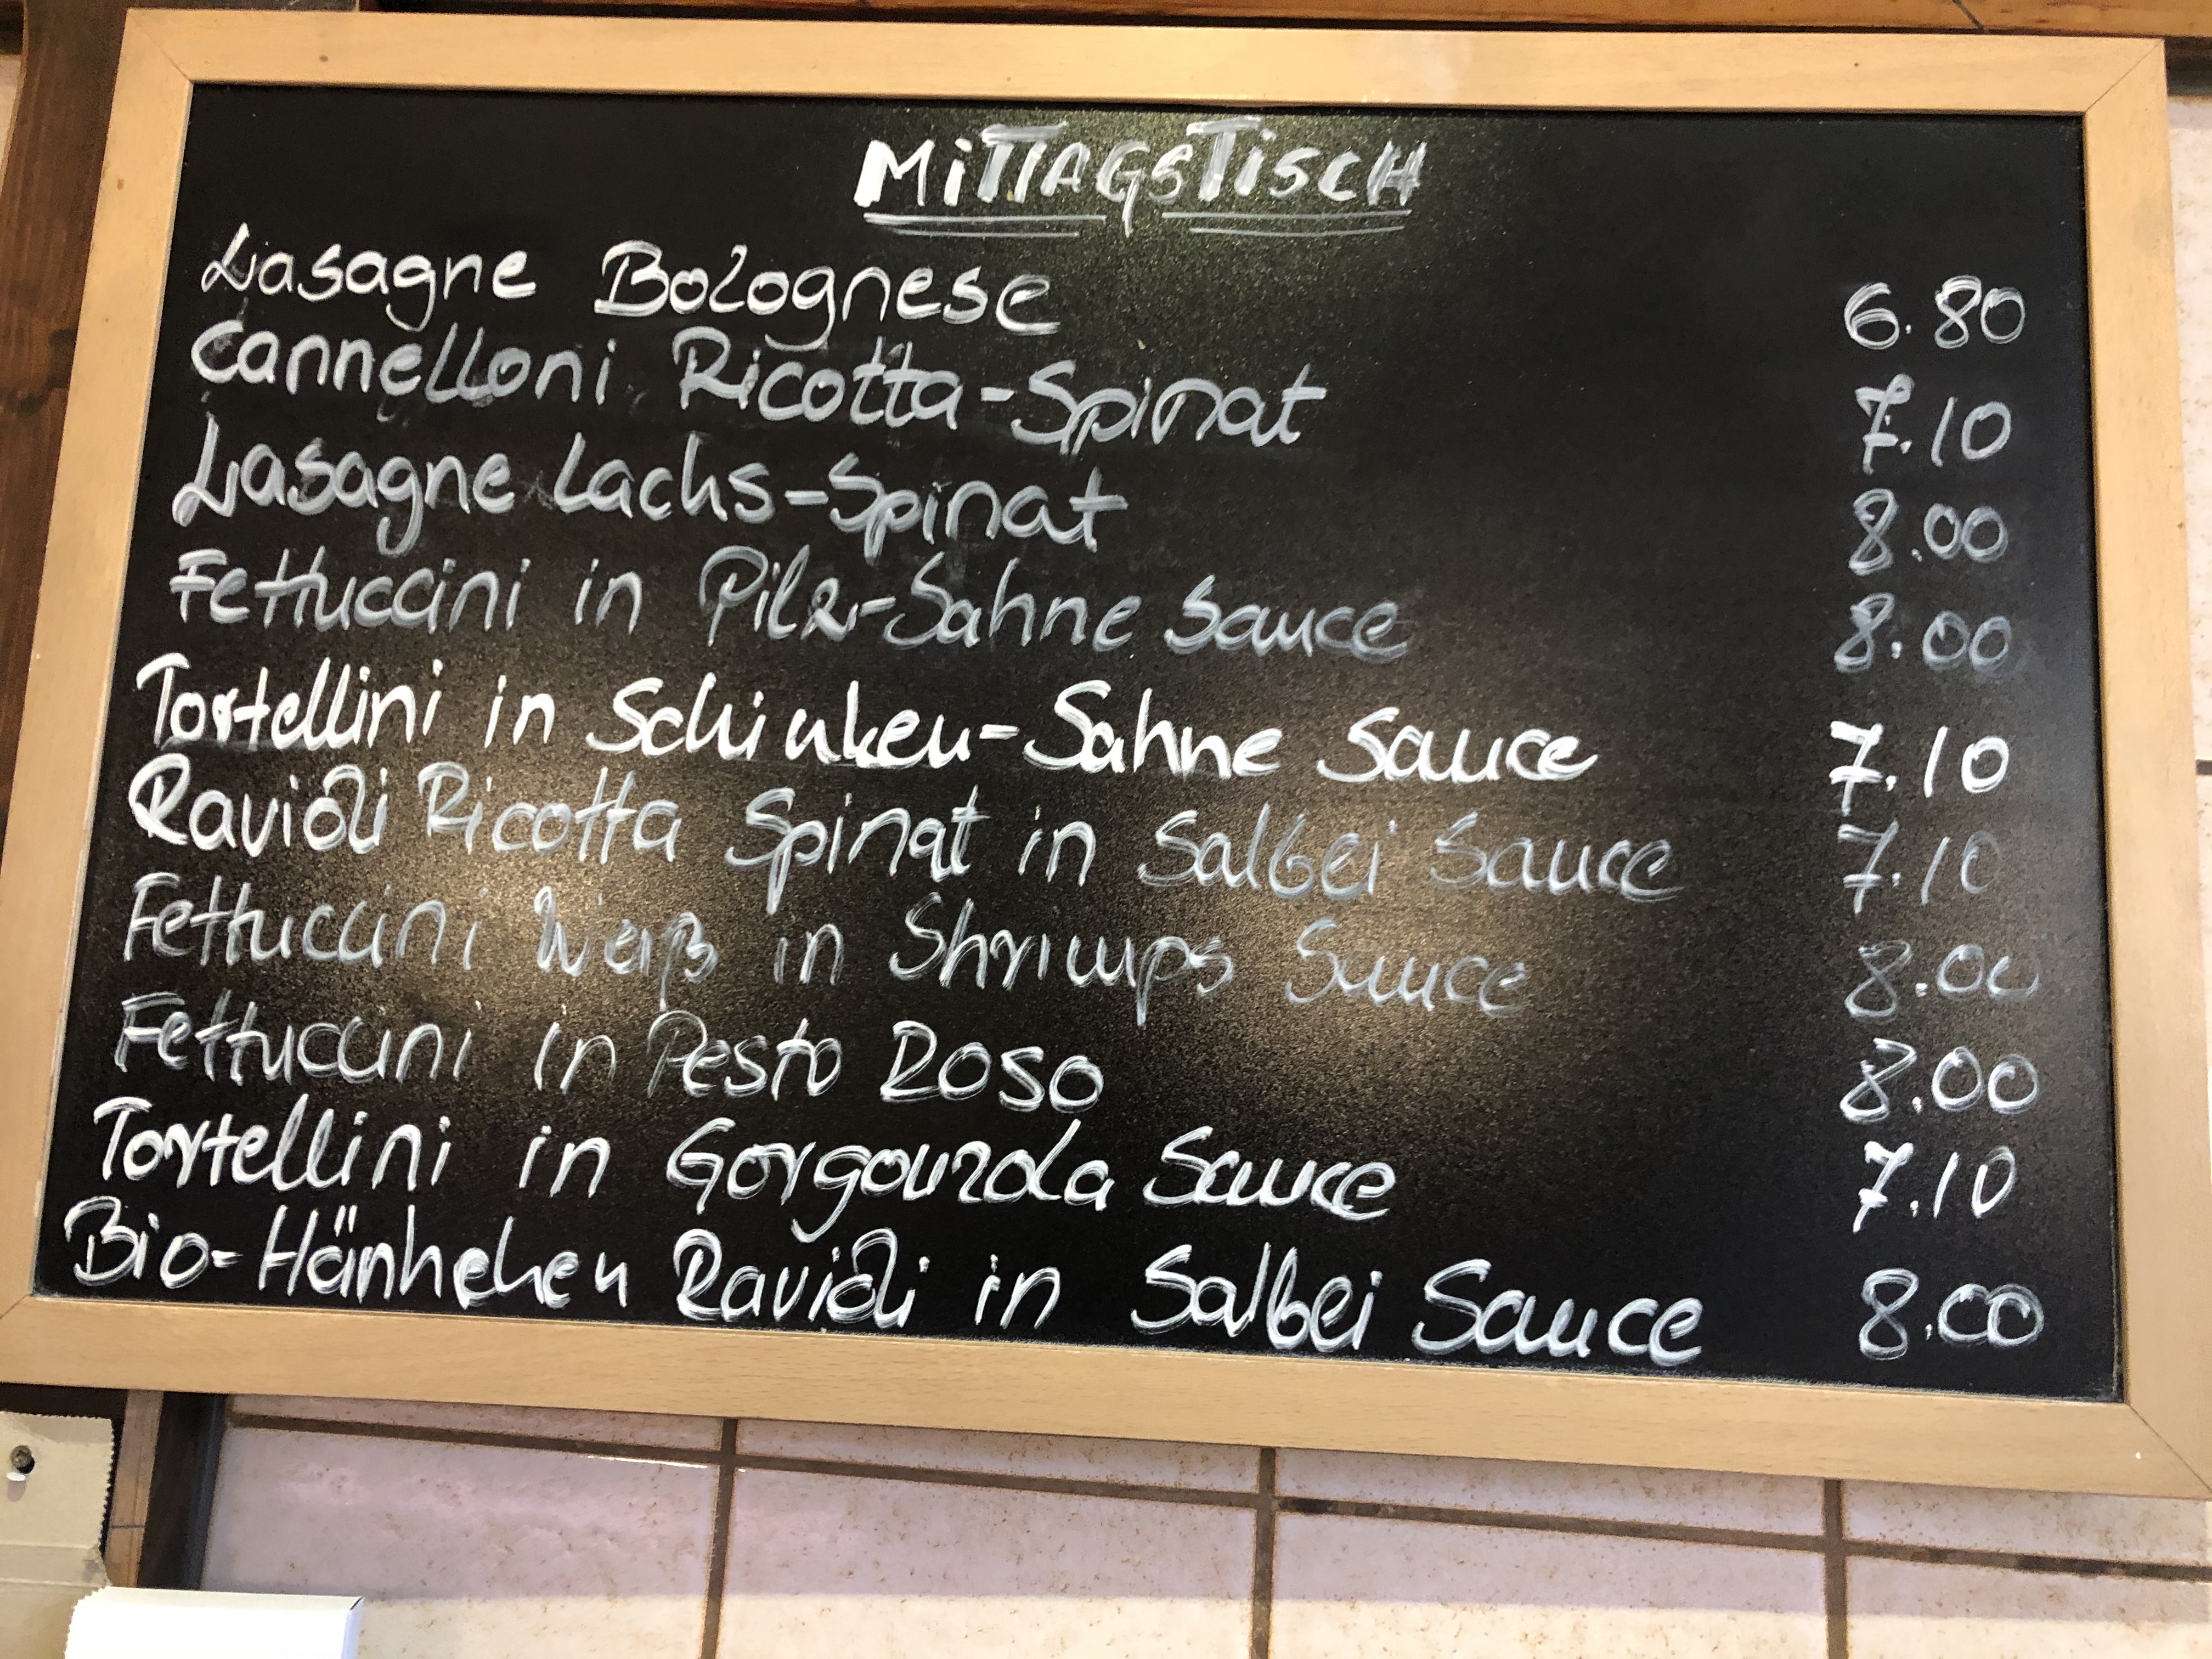 MiTTAGSTiSCH
Lasagne Bolognese 6.80
Cannelloni Ricotta-Spinat 7.10
Lasagne Lachs-Spinat 8.00
Fettuccini in Pilz-Sahne Sauce 8.00
Tortellini in Schinken-Sahne Sauce 7.10
Ravioli Ricotta Spinat in Salbei Sauce 7.10
Fettuccini Weiß in Shrimps Sauce 8.00
Fettuccini in Pesto Roso 8.00
Tortellini in Gorgonzola Sauce 7.10
Bio-Hänhchen Ravioli in Salbei Sauce 8.00